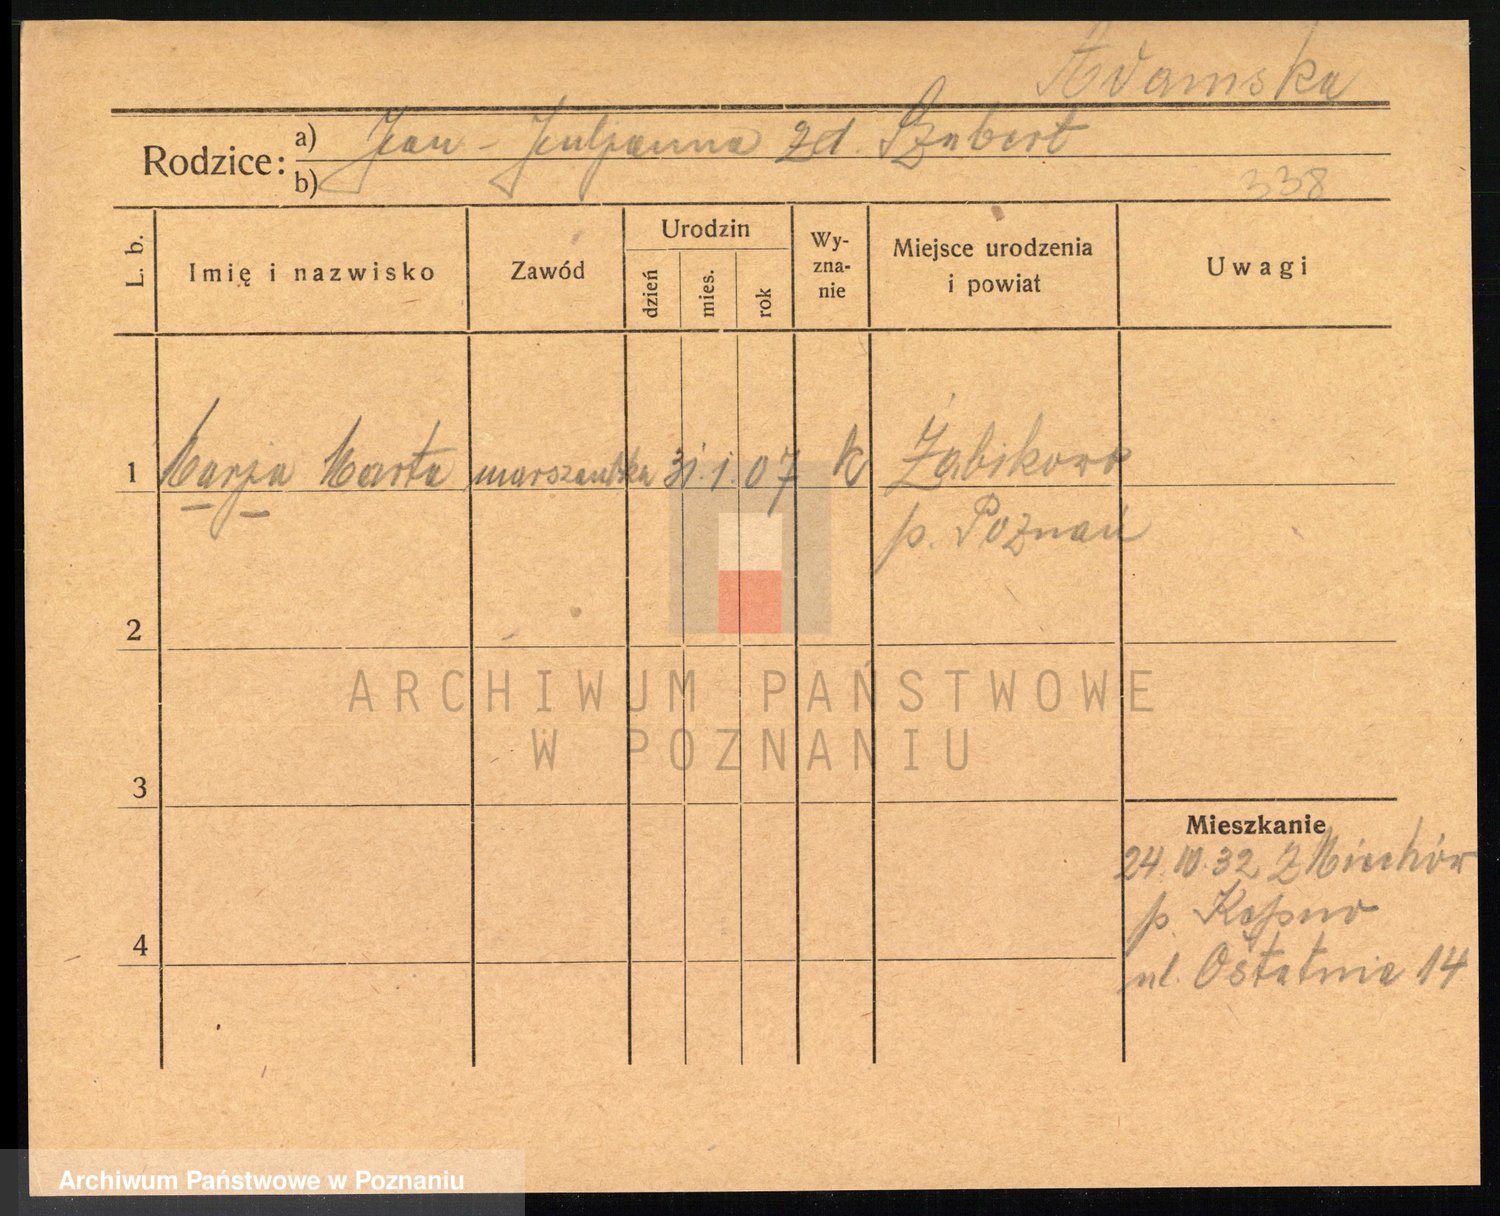 Adamska
Rodzice:
a) Jan - Juljanna zd. Szubert
b)
338
L. b.
Imię i nazwisko
Zawód
Urodzin
dzień
mies.
rok
Wy-
zna-
nie
Miejsce urodzenia
i powiat
Uwagi
1 Marja Marta 31. 1. 07 k Żabikowo
p. Poznań
2
3
4
Mieszkanie
24. 10. 32 z Miechów
p. Kępno
ul. Ostatnia 14
ARCHIWUM PAŃSTWOWE
W POZNANIU
Archiwum Państwowe w Poznaniu